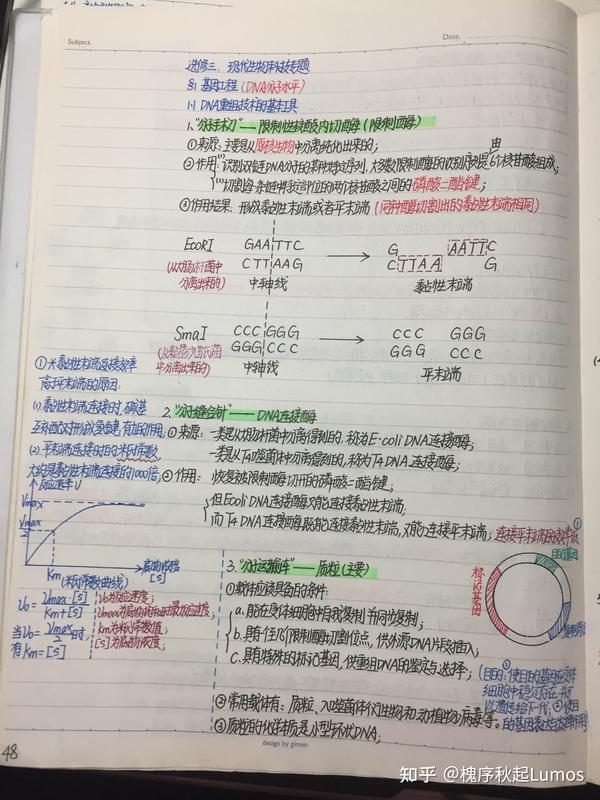 Subject.
Date.
选修三、现代生物科技专题
§1 基因工程(DNA分子水平)
1·1 DNA重组技术的基本工具
1、"分子手术刀"——限制性核酸内切酶(限制酶)
①来源:主要是从原核生物中分离纯化出来的;
②作用:⑴识别双链DNA分子的某种特定序列,大多数限制酶的识别序列由6个核苷酸组成;
⑵切割每条链中特定部位的两个核苷酸之间的磷酸二酯键;
③作用结果:形成黏性末端或者平末端(同种酶切割出的黏性末端相同)
EcoRI GAATTC G AATTC
(从大肠杆菌中分离出来的) CTTAAG CTTAA G
中轴线 黏性末端
SmaI CCCGGG CCC GGG
GGGCCC GGG CCC
中分离来的) 中轴线 平末端
①*黏性末端连接效率
高于平末端的原因:
⑴黏性末端连接时,碱基
互补配对形成氢键,有加固作用;
⑵平末端连接时的米氏常数
大约是黏性末端连接的1000倍;
2、"分子缝合针"——DNA连接酶
①来源:一类是从大肠杆菌中分离得到的,称为E·coli DNA连接酶;
一类是从T4噬菌体中分离得到的,称为T4DNA连接酶;
②作用:恢复被限制酶切开的磷酸二酯键;
但Ecoli DNA连接酶只能连接黏性末端;
而T4 DNA连接酶既能连接黏性末端,又能连接平末端;连接平末端的效率低
反应速率V
Vmax
Vmax/2
Km(米氏常数曲线)
底物浓度[S]
V0 = Vmax·[S] / Km+[S]
V0为反应速度;
Vmax为底物饱和时最大反应速度;
Km为米氏常数值;
[S]为底物浓度;
当V0= Vmax/2 时,
有Km=[S]
3、"分子运输车"——质粒(主要)
①载体应该具备的条件:
a、能在受体细胞中自我复制并同步复制;
b、具有1至几个限制酶切割位点,供外源DNA片段插入;
c、具有特殊的标记基因,供重组DNA的鉴定与选择;
标记基因
目的基因
复制原点
(目的:①使目的基因在受体
细胞中稳定存在,并可
以遗传给下一代;②使目
的基因表达与发挥作用)
②常用载体有:质粒、λ噬菌体衍生物和动植物病毒等。
③质粒的化学本质是小型环状DNA;
design by gimen
48
知乎 @槐序秋起Lumos